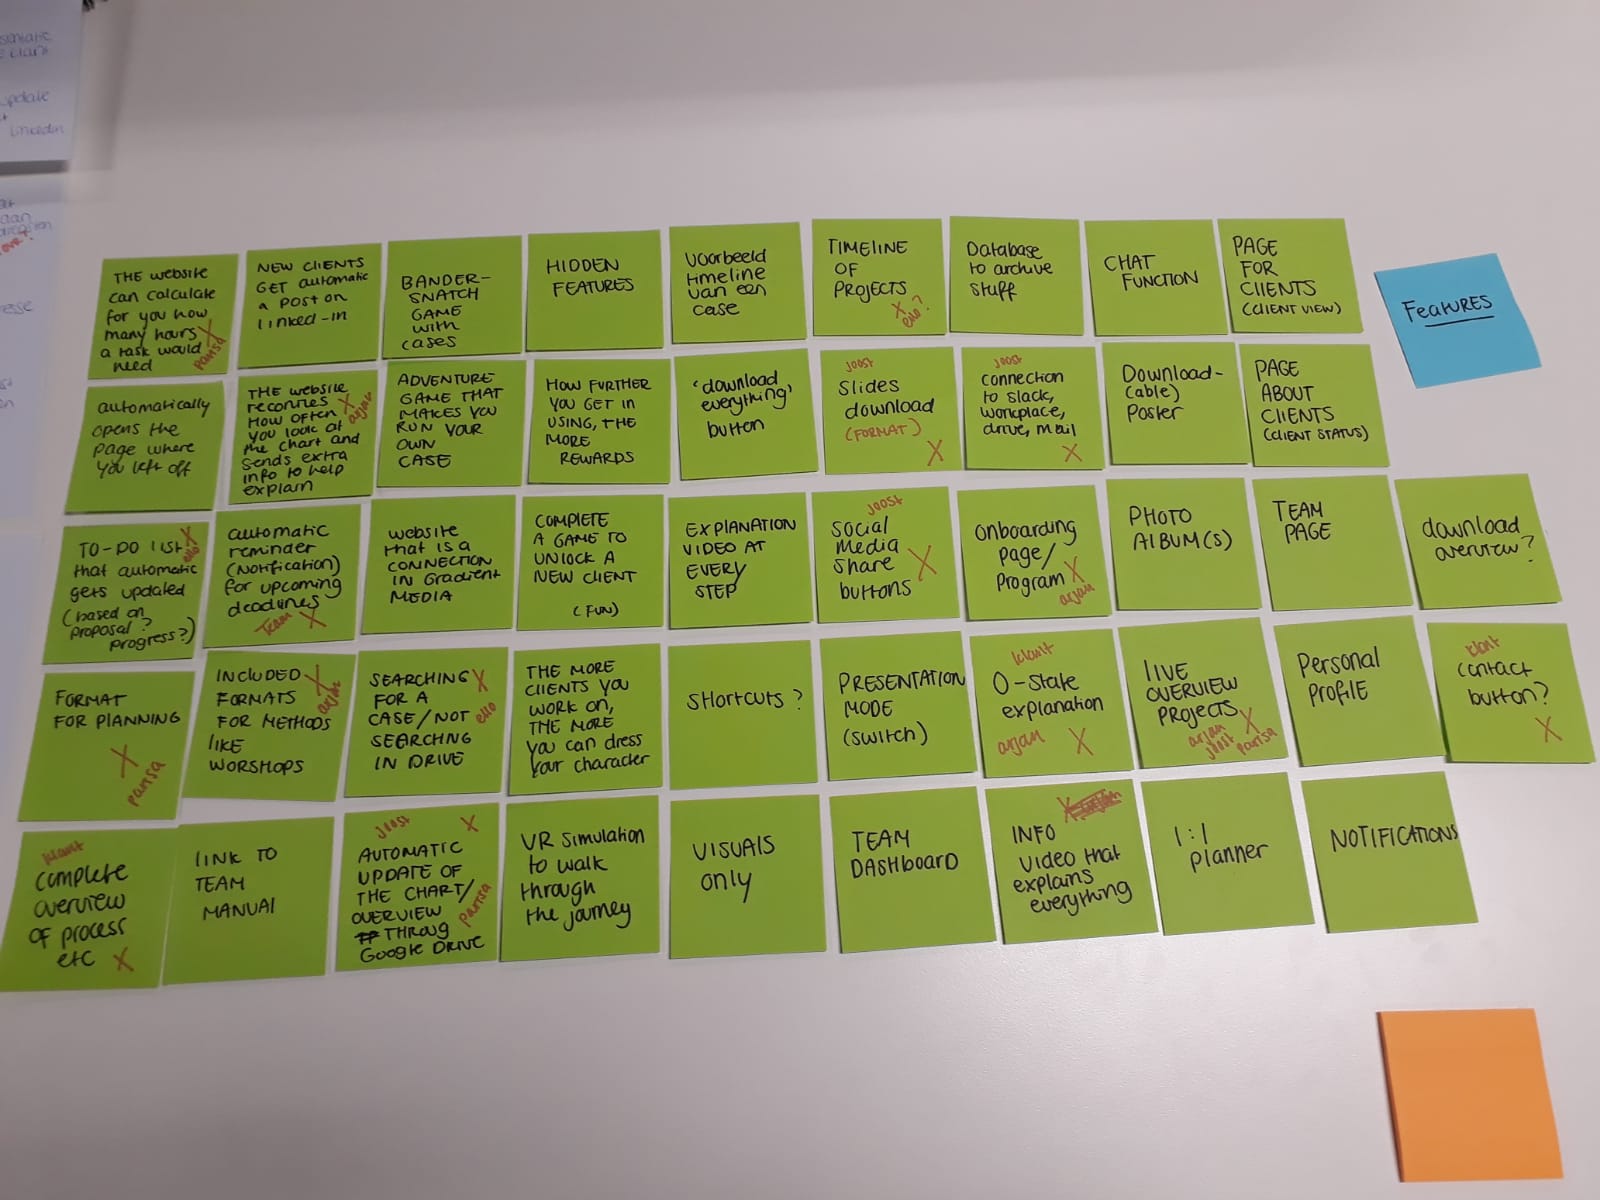 THE website
can calculate
for you how
many hours X
a task would parisa
need
NEW CLIENTS
GET automatic
a post on
linked-in
BANDER-
SNATCH
GAME
with
cases
HIDDEN
FEATURES
Voorbeeld
timeline
van een
case
TIMELINE
OF
PROJECTS
X
ello?
Database
to archive
stuff
CHAT
FUNCTION
PAGE
FOR
CLIENTS
(CLIENT VIEW)
FEATURES
automatically
opens the
page where
you left off
THE website
X
How often arjan
you look at
the chart and
sends extra
info to help
explain
ADVENTURE
GAME THAT
MAKES YOU
RUN YOUR
OWN
CASE
HOW FURTHER
YOU GET IN
USING, THE
MORE
REWARDS
'download
everything'
button
Joost
Slides
download
(FORMAT)
X
Joost
connection
to slack,
workplace,
drive, mail
X
Download-
(able)
Poster
PAGE
ABOUT
CLIENTS
(CLIENT STATUS)
TO-DO list X
that automatic ello
gets updated
(based on
proposal?
progress?)
automatic
reminder
(Notification)
for upcoming
deadlines
Team X
website
that is a
CONNECTION
IN Gradient
MEDIA
COMPLETE
A GAME TO
UNLOCK A
NEW CLIENT
(FUN)
EXPLANATION
VIDEO AT
EVERY
STEP
Joost
SOCIAL
Media
Share X
buttons
Onboarding
page/
Program X
arjan
PHOTO
ALBUM(S)
TEAM
PAGE
download
overview?
FORMAT
FOR PLANNING
X
parisa
INCLUDED X
FORMATS arjan
FOR METHODS
LIKE
WORSHOPS
SEARCHING X
FOR A
CASE/NOT ello
SEARCHING
IN DRIVE
THE MORE
CLIENTS YOU
WORK ON,
THE MORE
you can dress
your character
SHORTCUTS?
PRESENTATION
MODE
(SWITCH)
klant
0-state
explanation
arjan X
LIVE
OVERVIEW
PROJECTS X
arjan
Joost parisa
Personal
Profile
klant
contact
button?
X
klant
complete
overview
OF process
etc X
LINK TO
TEAM
MANUAL
Joost X
AUTOMATIC
UPDATE OF
THE CHART/
OVERVIEW parisa
THROUG
GOOGLE DRIVE
VR simulation
to walk
through
the journey
VISUALS
only
TEAM
DASHBOARD
X
INFO
Video that
explains
everything
1:1
planner
NOTIFICATIONS
update
LinkedIn